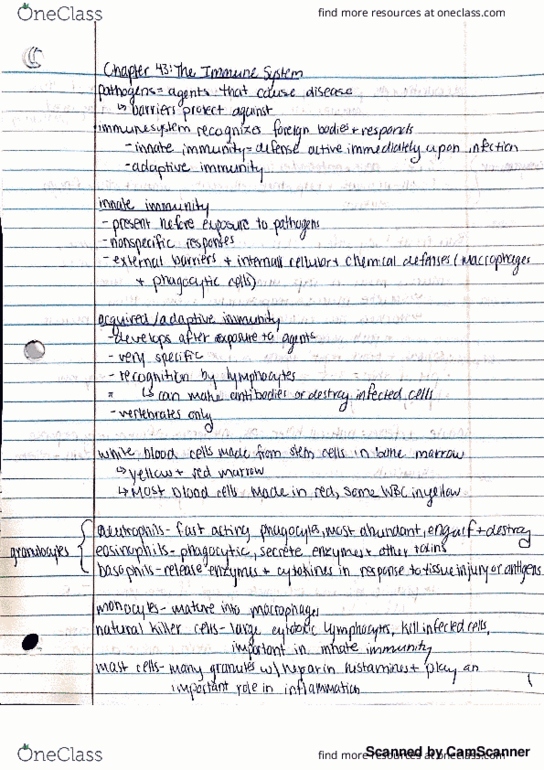 OneClass
find more resources at oneclass.com
Chapter 43: The Immune System
pathogens = agents that cause disease
↳ barriers protect against
immune system recognizes foreign bodies + responds
- innate immunity = defense active immediately upon infection
- adaptive immunity
innate immunity
- present before exposure to pathogens
- nonspecific responses
- external barriers + internal cellular + chemical defenses (macrophages
+ phagocytic cells)
acquired/adaptive immunity
- develops after exposure to agents
- very specific
- recognition by lymphocytes
↳ can make antibodies or destroy infected cells
- vertebrates only
white blood cells made from stem cells in bone marrow
↳ yellow + red marrow
↳ Most blood cells made in red, some WBC in yellow
neutrophils - fast acting phagocyte, most abundant, engulf + destroy
granulocytes { eosinophils - phagocytic, secrete enzymes + other toxins
basophils - release enzymes + cytokines in response to tissue injury or antigens
monocytes - mature into macrophages
natural killer cells - large cytotoxic lymphocytes, kill infected cells,
important in innate immunity
mast cells - many granules w/ heparin histamines + play an
important role in inflammation
OneClass
find more resources at oneclass.com
Scanned by CamScanner